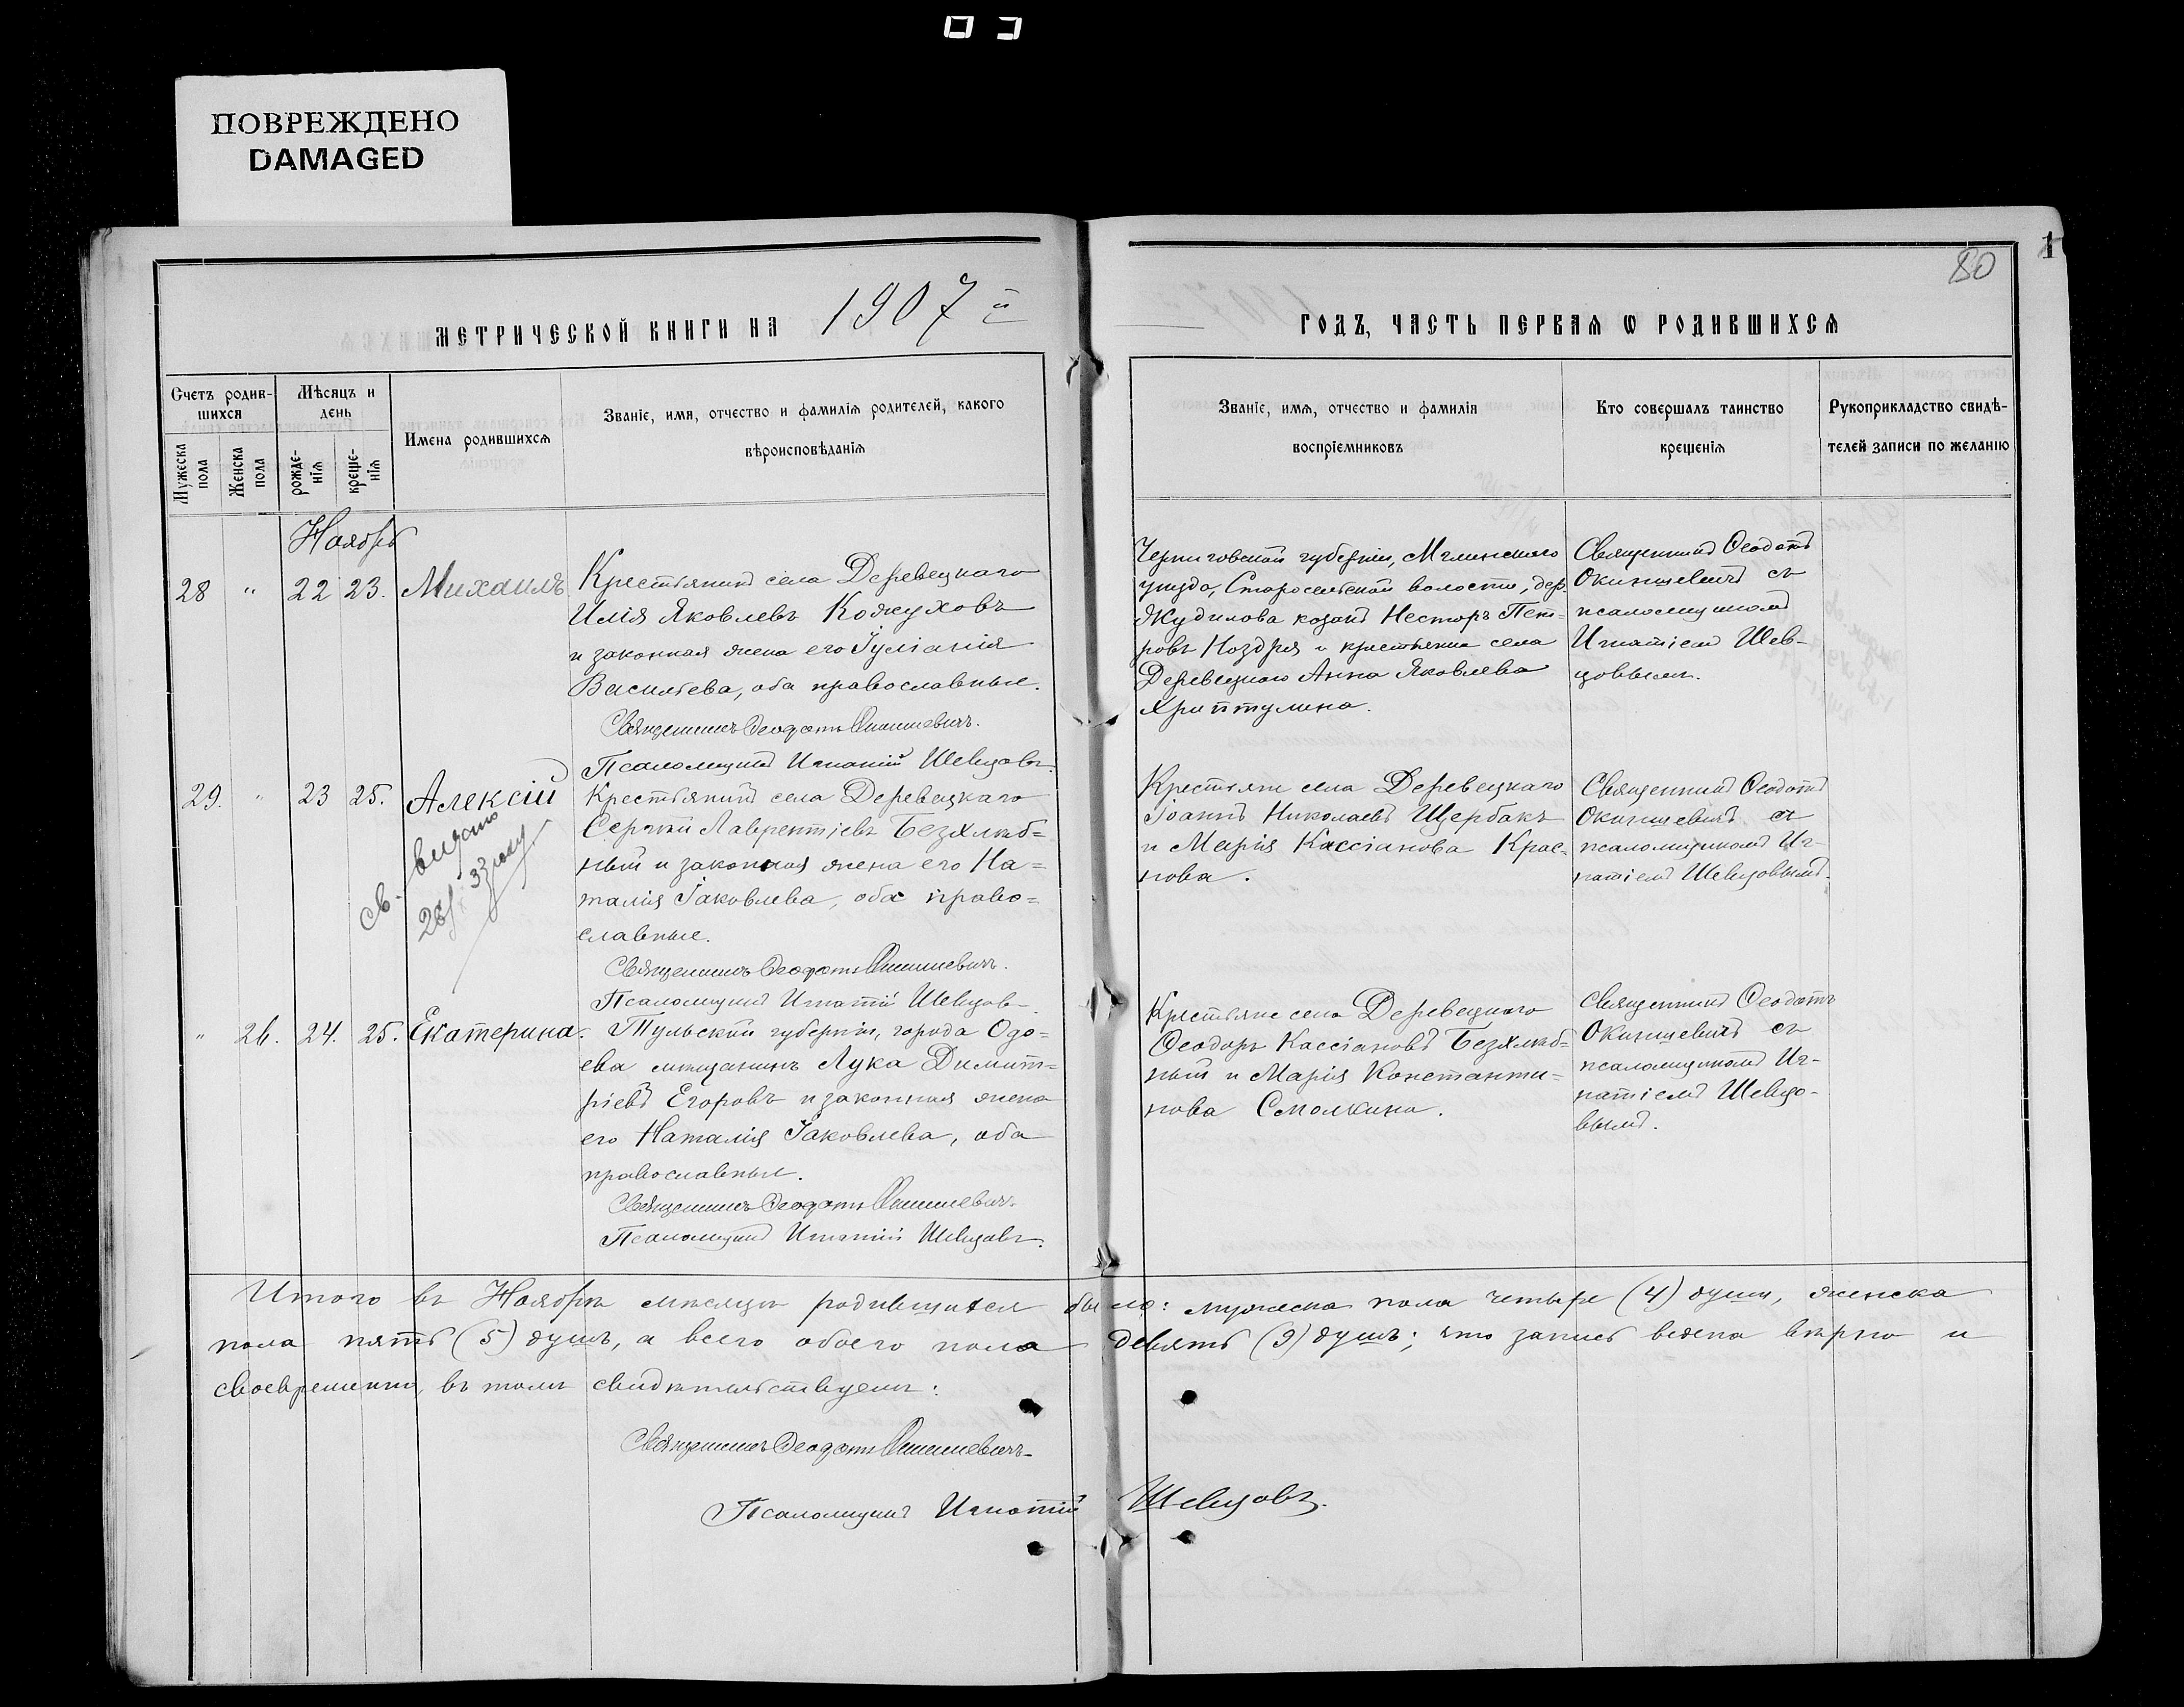 ПОВРЕЖДЕНО
DAMAGED
80
1
МЕТРИЧЕСКОЙ КНИГИ НА 1907 й
ГОДЪ, ЧАСТЬ ПЕРВАЯ Ѡ РОДИВШИХСЯ
Счетъ родив-
шихся
Мужеска пола
Женска пола
Мѣсяцъ и
день
рожде-
нія
креще-
нія
Имена родившихся
Званіе, имя, отчество и фамилія родителей, какого
вѣроисповѣданія
Званіе, имя, отчество и фамилія
воспріемниковъ
Кто совершалъ таинство
крещенія
Рукоприкладство свидѣ-
телей записи по желанію
Ноябрь
28 " 22 23. Михаилъ
Крестьянинъ села Деревецкаго
Илія Яковлевъ Кожуховъ
и законная жена его Іуліанія
Васильева, оба православные.
Священникъ Ѳеодотъ Окишевичъ.
Псаломщикъ Игнатій Шевцовъ.
Черниговской губерніи, Мглинскаго
уѣзда, Старосельской волости, дер.
Жудилова козакъ Несторъ Пет-
ровъ Ноздря и крестьянка села
Деревецкаго Анна Яковлева
Священникъ Ѳеодотъ
Окишевичъ съ
псаломщикомъ
Игнатіемъ Шев-
цовымъ.
29. " 23 25. Алексій
св. видано
28/ 33 року
Крестьянинъ села Деревецкаго
Сергѣй Лаврентіевъ Безхлѣб=
ный и законная жена его На=
талія Іаковлева, оба право=
славные.
Священникъ Ѳеодотъ Окишевичъ.
Псаломщикъ Игнатій Шевцовъ
Крестьяне села Деревецкаго
Іоаннъ Николаевъ Щербакъ
и Марія Кассіанова Крас-
нова.
Священникъ Ѳеодотъ
Окишевичъ съ
псаломщикомъ Иг-
натіемъ Шевцовымъ.
" 26. 24. 25. Екатерина.
Тульской губерніи, города Одо=
ева мѣщанинъ Лука Димит=
ріевъ Егоровъ и законная жена
его Наталія Іаковлева, оба
православные.
Священникъ Ѳеодотъ Окишевичъ.
Псаломщикъ Игнатій Шевцовъ.
Крестьяне села Деревецкаго
Ѳеодоръ Кассіановъ Безхлѣб=
ный и Марія Константи=
нова Смолкина.
Священникъ Ѳеодотъ
Окишевичъ съ
псаломщикомъ Иг-
натіемъ Шевцо-
вымъ.
Итого въ Ноябрѣ мѣсяцѣ родившихся было: мужеска пола четыре (4) души, женска
пола пять (5) душъ, а всего обоего пола девять (9) душъ; что запись ведена вѣрно и
своевременно, въ томъ свидѣтельствуемъ:
Священникъ Ѳеодотъ Окишевичъ
Псаломщикъ Игнатій Шевцовъ.